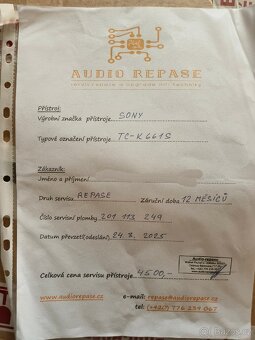 AUDIO REPASE
servis, repase a upgrade hifi techniky
Přístroj:
Výrobní značka přístroje SONY
Typové označení přístroje TC-K661S
Zákazník:
Jméno a příjmení
Druh servisu REPASE Záruční doba 12 MĚSÍCŮ
Číslo servisní plomby 201 113 249
Datum převzetí(odeslání) 24.3. 2025
Celková cena servisu přístroje 4500,-
Audio repase
www.audiorepase.cz e-mail: repase@audiorepase.cz
tel: (+420) 776 239 067